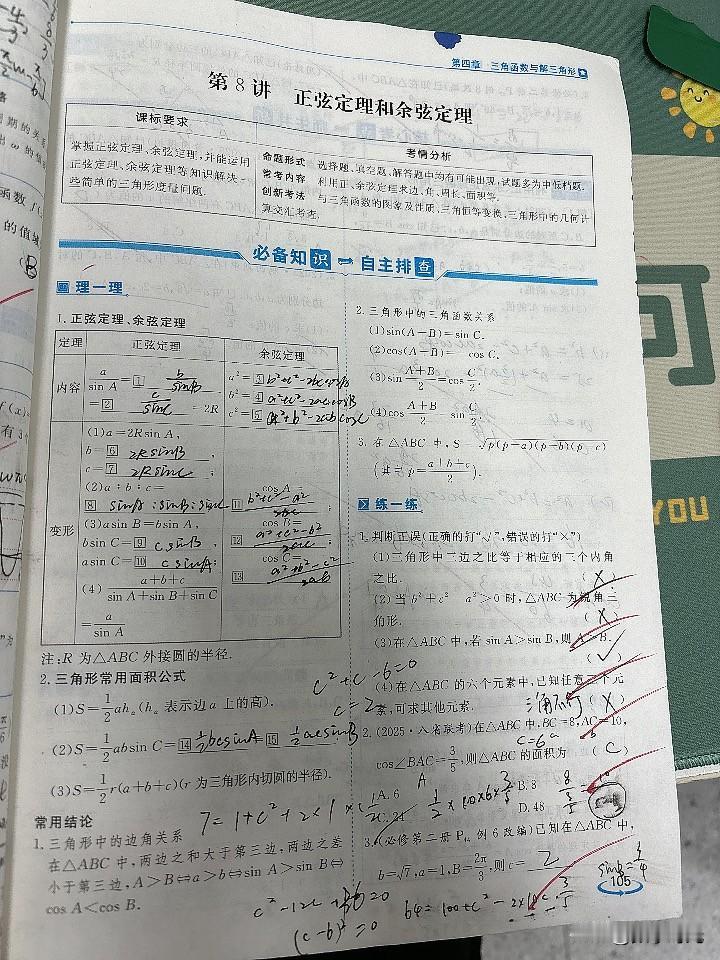 第四章 三角函数与解三角形
第8讲 正弦定理和余弦定理
课标要求
掌握正弦定理、余弦定理,并能运用
正弦定理、余弦定理等知识解决一
些简单的三角形度量问题.
考情分析
命题形式 选择题、填空题、解答题中均有可能出现,试题多为中低档题.
常考内容 利用正、余弦定理求边、角、周长、面积等.
创新考法 与三角函数的图象及性质、三角恒等变换、三角形中的几何计
算交汇考查.
必备知识 自主排查
理一理
1.正弦定理、余弦定理
定理 正弦定理 余弦定理
内容 a/sin A=1 b/sinB
=2 c/sinC =2R
a²=3 b²+c²-2bccosB
b²=4 a²+c²-2accosB
c²=5 a²+b²-2abcosC
变形
(1)a=2Rsin A,
b=6 2RsinB,
c=7 2RsinC;
(2)a:b:c=
8 sinA:sinB:sinC;
(3)asin B=bsin A,
bsin C=9 csinB,
asin C=10 csinA;
(4) (a+b+c)/(sin A+sin B+sin C)
=a/sin A
cos A=
11 (b²+c²-a²)/2bc
cos B=
12 (a²+c²-b²)/2ac
cos C=
13 (a²+b²-c²)/2ab
注:R 为△ABC 外接圆的半径.
2.三角形常用面积公式
(1)S=1/2 ahₐ(hₐ 表示边 a 上的高).
(2)S=1/2 absin C=14 1/2 bcsinA=15 1/2 acsinB
(3)S=1/2 r(a+b+c)(r 为三角形内切圆的半径).
常用结论
1.三角形中的边角关系
在△ABC 中,两边之和大于第三边,两边之差
小于第三边,A>B⇔a>b⇔sin A>sin B⇔
cos A<cos B.
2.三角形中的三角函数关系
(1)sin(A+B)=sin C.
(2)cos(A+B)=-cos C.
(3)sin (A+B)/2=cos C/2.
(4)cos (A+B)/2=sin C/2.
3.在△ABC 中,S=√p(p-a)(p-b)(p-c)
(其中 p=(a+b+c)/2).
练一练
1.判断正误(正确的打"√",错误的打"×")
(1)三角形中三边之比等于相应的三个内角
之比. (×)
(2)当 b²+c²-a²>0 时,△ABC 为锐角三
角形. (×)
(3)在△ABC 中,若 sin A>sin B,则 A>B.
(√)
(4)在△ABC 的六个元素中,已知任意三个元
素,可求其他元素. 三角不行 (×)
2.(2025·八省联考)在△ABC 中,BC=8,AC=10,
c=6
cos∠BAC=3/5,则△ABC 的面积为 (C)
A.6 B.8
C.24 D.48
3.(必修第二册 例6改编)已知在△ABC 中,
b=√7,a=1,B=2π/3,则 c=2
c²+c-6=0
c=2
7=1+c²+2×1×c·1/2
c²-12c+36=0
(c-6)²=0
64=100+c²-2×10c·3/5
sinB=3/4
105